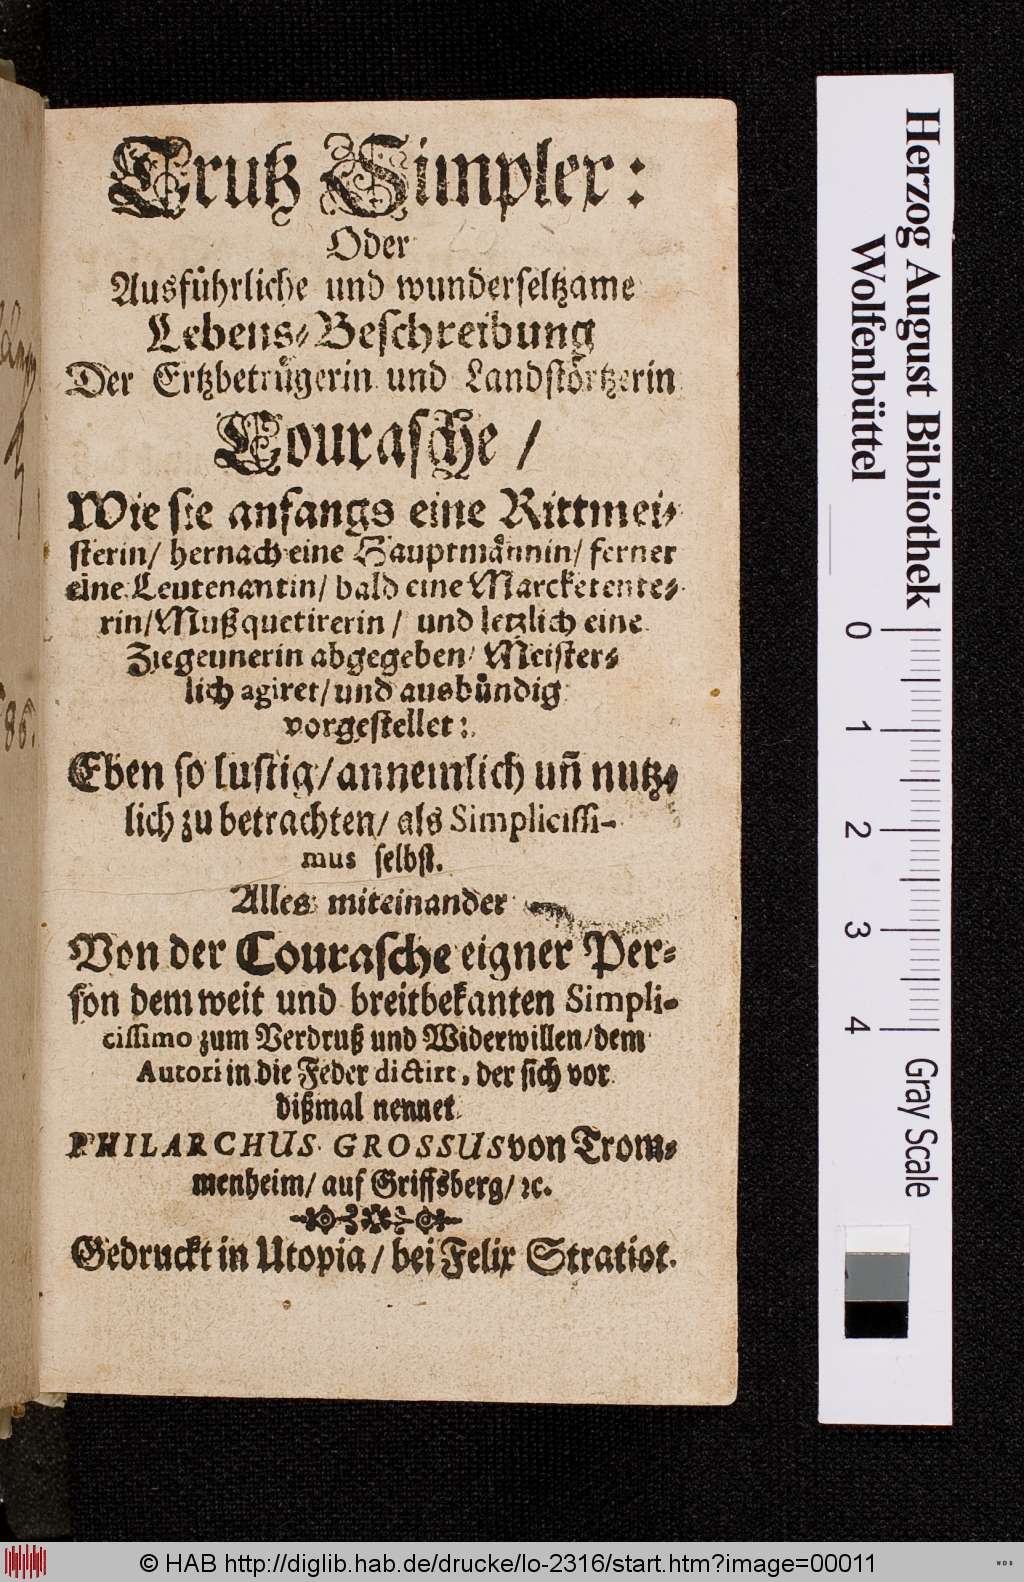 Trutz Simplex:
Oder
Ausführliche und wunderseltzame
Lebens-Beschreibung
Der Ertzbetrügerin und Landstörtzerin
Courasche /
Wie sie anfangs eine Rittmei-
sterin/ hernach eine Hauptmännin/ ferner
eine Leutenantin/ bald eine Marcketente-
rin/ Mußquetirerin / und letzlich eine
Ziegeunerin abgegeben/ Meister-
lich agiret/ und ausbündig
vorgestellet:
Eben so lustig/ annemlich uñ nutz-
lich zu betrachten/ als Simplicissi-
mus selbst.
Alles miteinander
Von der Courasche eigner Per-
son dem weit und breitbekanten Simpli-
cissimo zum Verdruß und Widerwillen/ dem
Autori in die Feder dictirt, der sich vor
dißmal nennet
PHILARCHUS GROSSUS von Trom-
menheim/ auf Griffsberg/ ꝛc.
Gedruckt in Utopia / bei Felix Stratiot.
86.
Herzog August Bibliothek
Wolfenbüttel
0
1
2
3
4
Gray Scale
© HAB http://diglib.hab.de/drucke/lo-2316/start.htm?image=00011
WDB